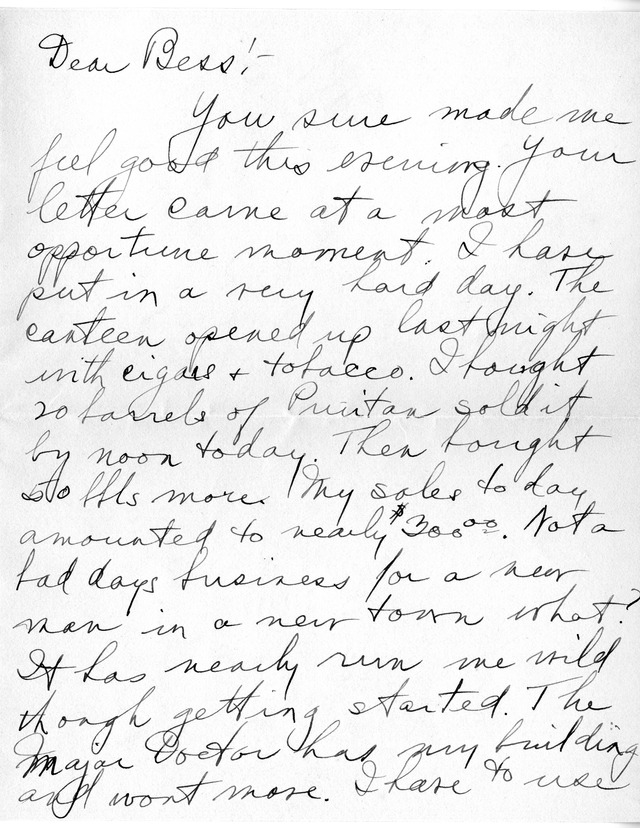 Dear Bess!-
You sure made me
feel good this evening. Your
letter came at a most
opportune moment. I have
put in a very hard day. The
canteen opened up last night
with cigars + tobacco. I bought
20 barrels of Puritan sold it
by noon today. Then bought
50 bbls more. My sales to day
amounted to nearly $300⁰⁰. Not a
bad days business for a new
man in a new town what?
It has nearly run me wild
though getting started. The
Major Doctor has my building
and wont move. I have to use